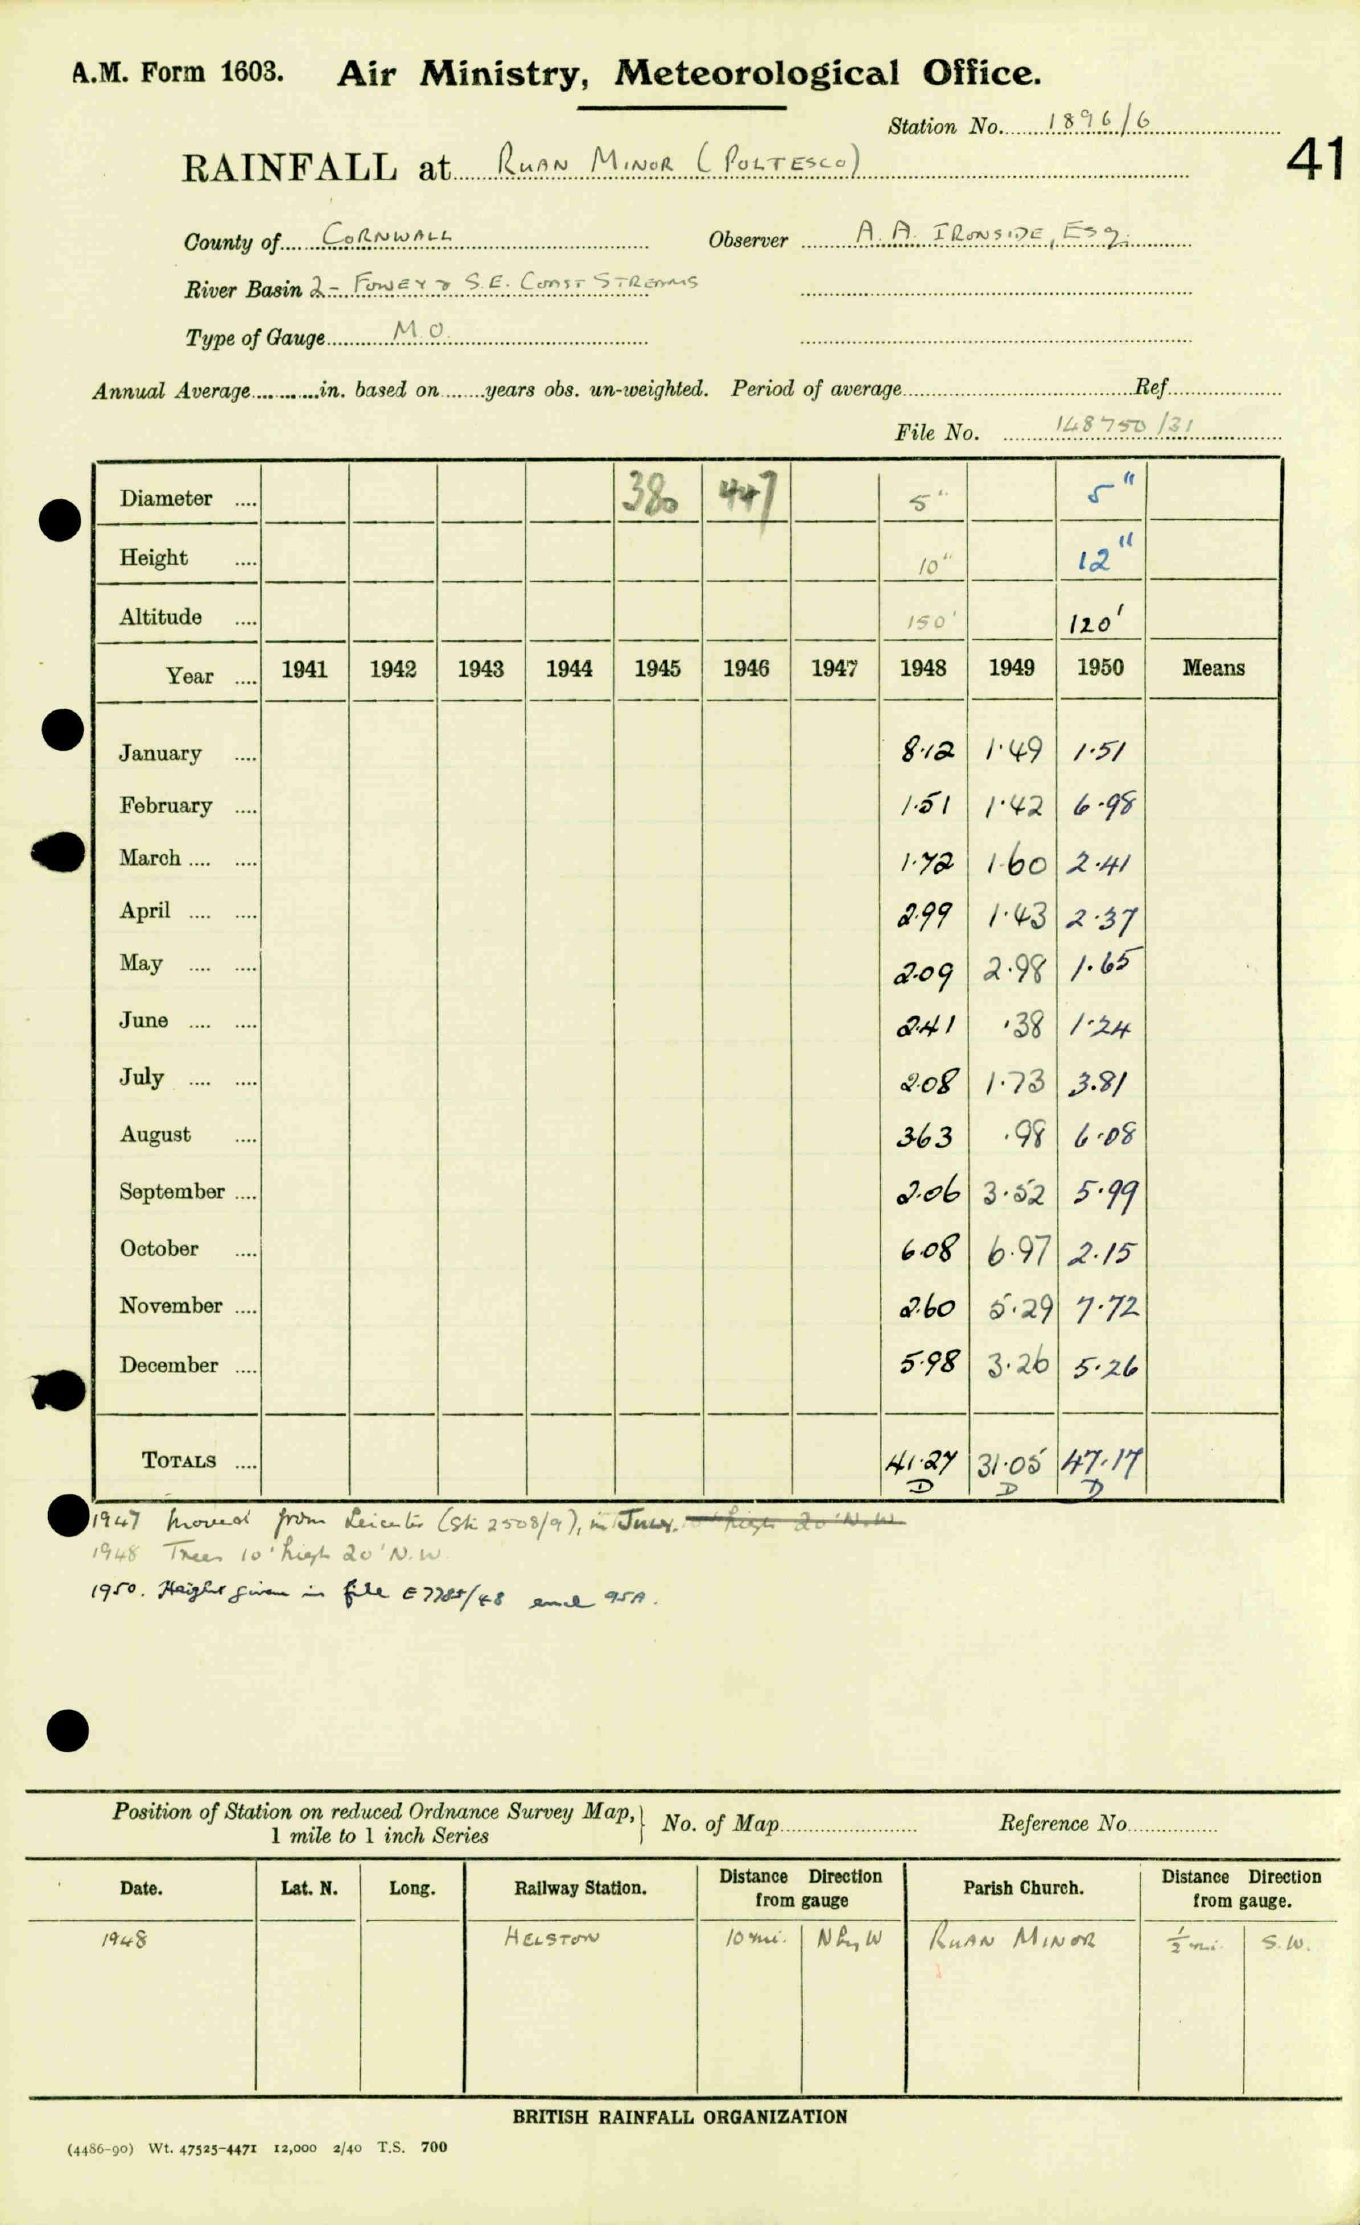 A.M. Form 1603. Air Ministry, Meteorological Office.
Station No. 1896/6
RAINFALL at RUAN MINOR (POLTESCO)
41
County of CORNWALL Observer A. A. IRONSIDE, ESQ.
River Basin 2 - FOWEY & S.E. COAST STREAMS
Type of Gauge M.O.
Annual Average in. based on years obs. un-weighted. Period of average Ref.
File No. 148750/31
Diameter .... 380 447 5" 5"
Height .... 10" 12"
Altitude .... 150' 120'
Year .... 1941 1942 1943 1944 1945 1946 1947 1948 1949 1950 Means
January .... 8.12 1.49 1.51
February .... 1.51 1.42 6.98
March .... .... 1.72 1.60 2.41
April .... .... 2.99 1.43 2.37
May .... .... 2.09 2.98 1.65
June .... .... 2.41 .38 1.24
July .... .... 2.08 1.73 3.81
August .... 3.63 .98 6.08
September .... 2.06 3.52 5.99
October .... 6.08 6.97 2.15
November .... 2.60 5.29 7.72
December .... 5.98 3.26 5.26
TOTALS .... 41.27 31.05 47.17
D D D
1947 Moved from Leicester (Stn 2508/9), in high 20' N.W.
1948 Trees 10' high 20' N.W.
1950. Height given in file E7785/48 encl 95A.
Position of Station on reduced Ordnance Survey Map, 1 mile to 1 inch Series } No. of Map Reference No.
Date. Lat. N. Long. Railway Station. Distance Direction from gauge Parish Church. Distance Direction from gauge.
1948 HELSTON 10 mi. N by W RUAN MINOR ½ mi. S.W.
BRITISH RAINFALL ORGANIZATION
(4486-90) Wt. 47525-4471 12,000 2/40 T.S. 700